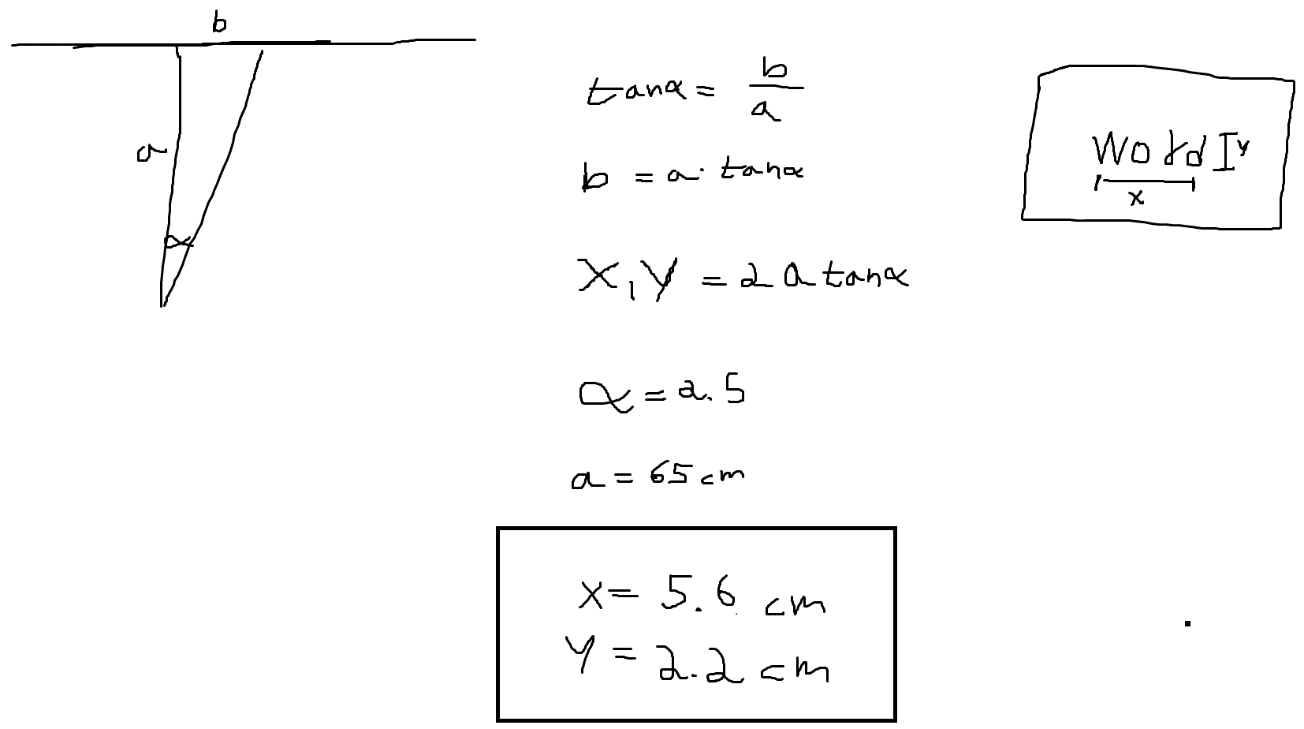 b
a
α
tanα = b/a
b = a· tanα
X, Y = 2 a tanα
α = 2.5
a = 65 cm
x = 5.6 cm
Y = 2.2 cm
Word I y
x